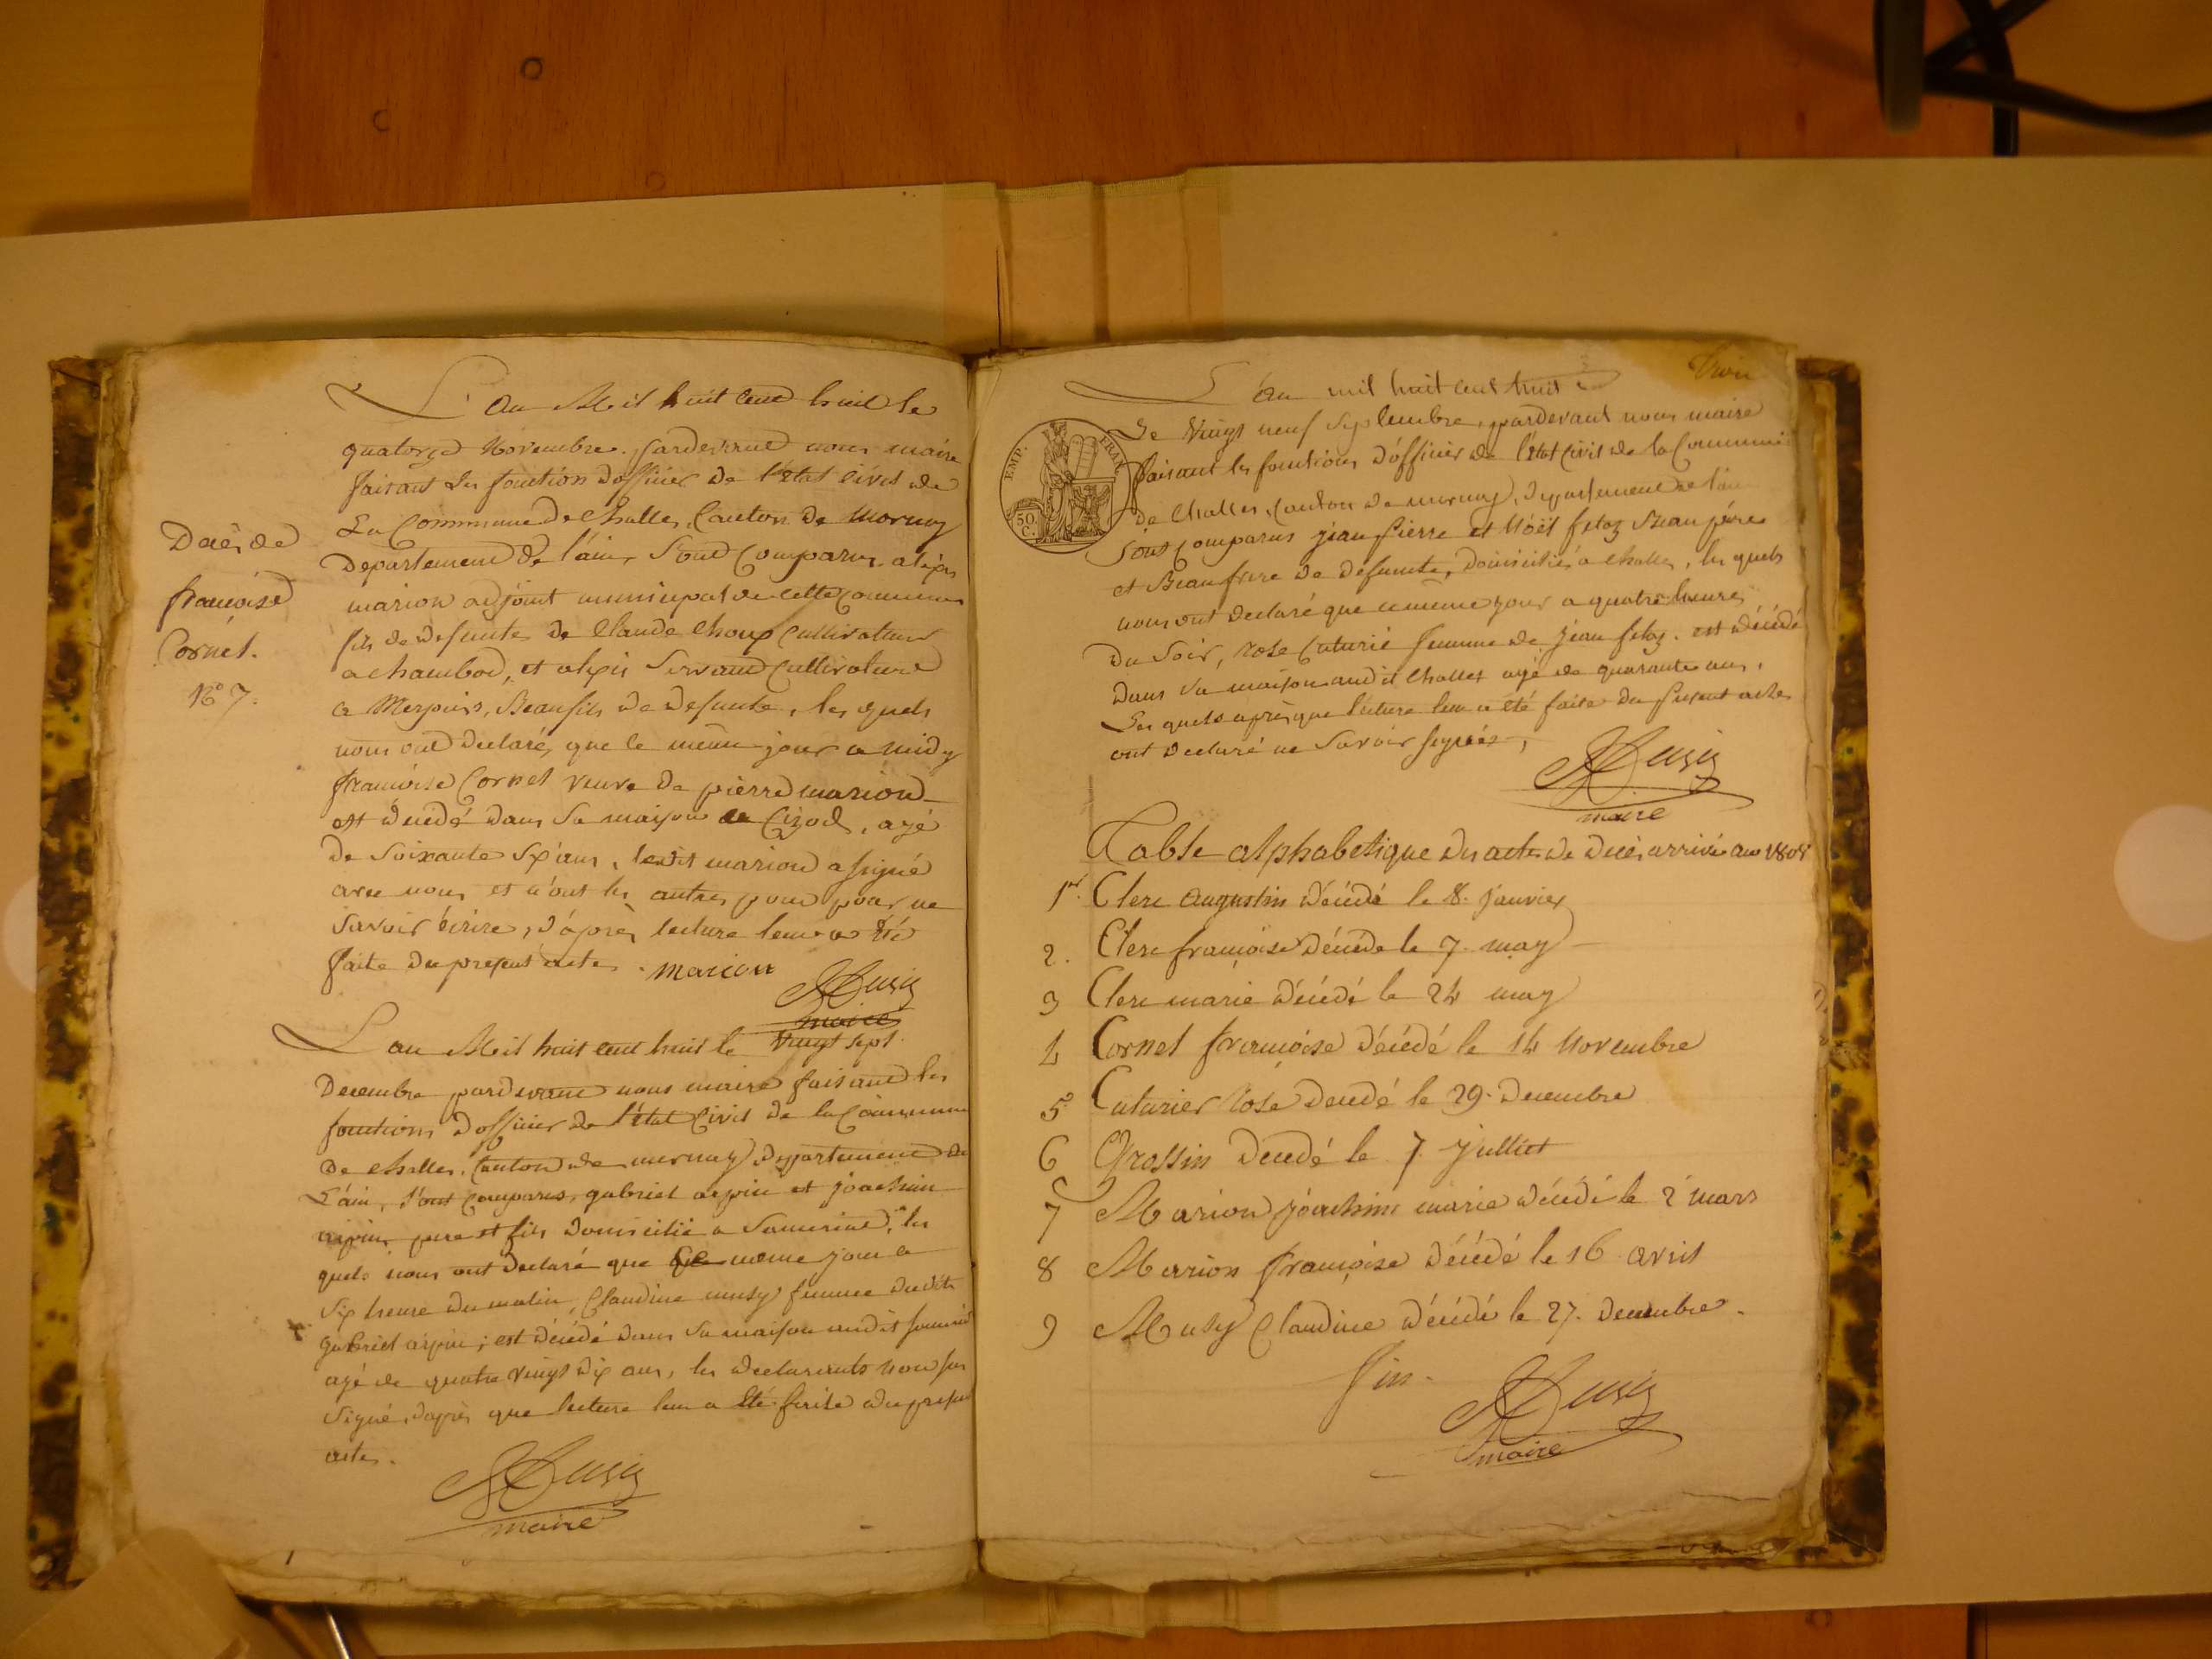 L'an Mil huit cent huit le
quatorze Novembre. pardevant nous maire
faisant les fonction d'officier de l'état civil de
La Commune de Challes, Canton de Mornay
Departement de l'ain, Sont Comparus. alexis
marion adjoint municipal de cette commune
fils de defunte de Claude Choux Cultivateur
a chambod, et alexis Servand Cultivateur
a Merpuis, Beaufils de defunte, les quels
nous ont declaré, que le meme jour a midy
françoise Cornet veuve de pierre marion
est décédé dans sa maison a Cizod, agé
De Soixante Sx ans, ledit marion a signé
avec nous et n'ont les autres pour ne
Savoir écrire, d'après lecture leur a été
faite du present acte. marion
Musy
maire
Decès de
françoise
Cornet.
N° 7.
L'an Mil huit cent huit le Vingt sept
Decembre pardevant nous maire faisant les
fonctions d'officier de l'état Civil de la Commune
de Challes, Canton de mornay Departement de
L'ain, Sont comparus, gabriel arpin et joachim
arpin, pere et fils domicilié a Samerine, les
quels nous ont declaré que le meme jour a
Six heure du matin, Claudine musy femme dudit
gabriel arpin; est décédé dans sa maison audit
agé de quatre vingt dix ans, les declarants non pas
Signé, d'après que lecture leur a été faite du present
acte.
Musy
maire
EMP. FRAN.
50 C.
L'an mil huit cent huit
Le Vingt neuf Septembre, pardevant nous maire
faisant les fonctions d'officier de l'état civil de la Commune
de Challes, Canton de mornay, Departement de l'ain
Sont comparus jean pierre et Noël felaz Beau pére
et Beau frere de defunte, domicilié a challes, les quels
nous ont declaré que ce meme jour a quatre heures
du Soir, rose Cuturié femme de jean felaz. est décédé
dans sa maison audit Challes agé de quarante ans,
Les quels après que lecture leur a été faite du present acte
ont declaré ne Savoir signés,
Musy
maire
Table alphabetique des acte de decès arrivé an 1808
1er Clerc augustin décédé le 8. janvier
2. Clerc françoise décédé le 7. may
3 Clerc marie décédé le 24 may
4 Cornet françoise décédé le 14 Novembre
5° Cuturier rose decedé le 29. Decembre
6 Grossin decedé le 7. Julliet
7 Marion joachim marie décédé le 2 mars
8 Marion françoise décédé le 16 avril
9 Musy Claudine décédé le 27. Decembre.
fin.
Musy
maire